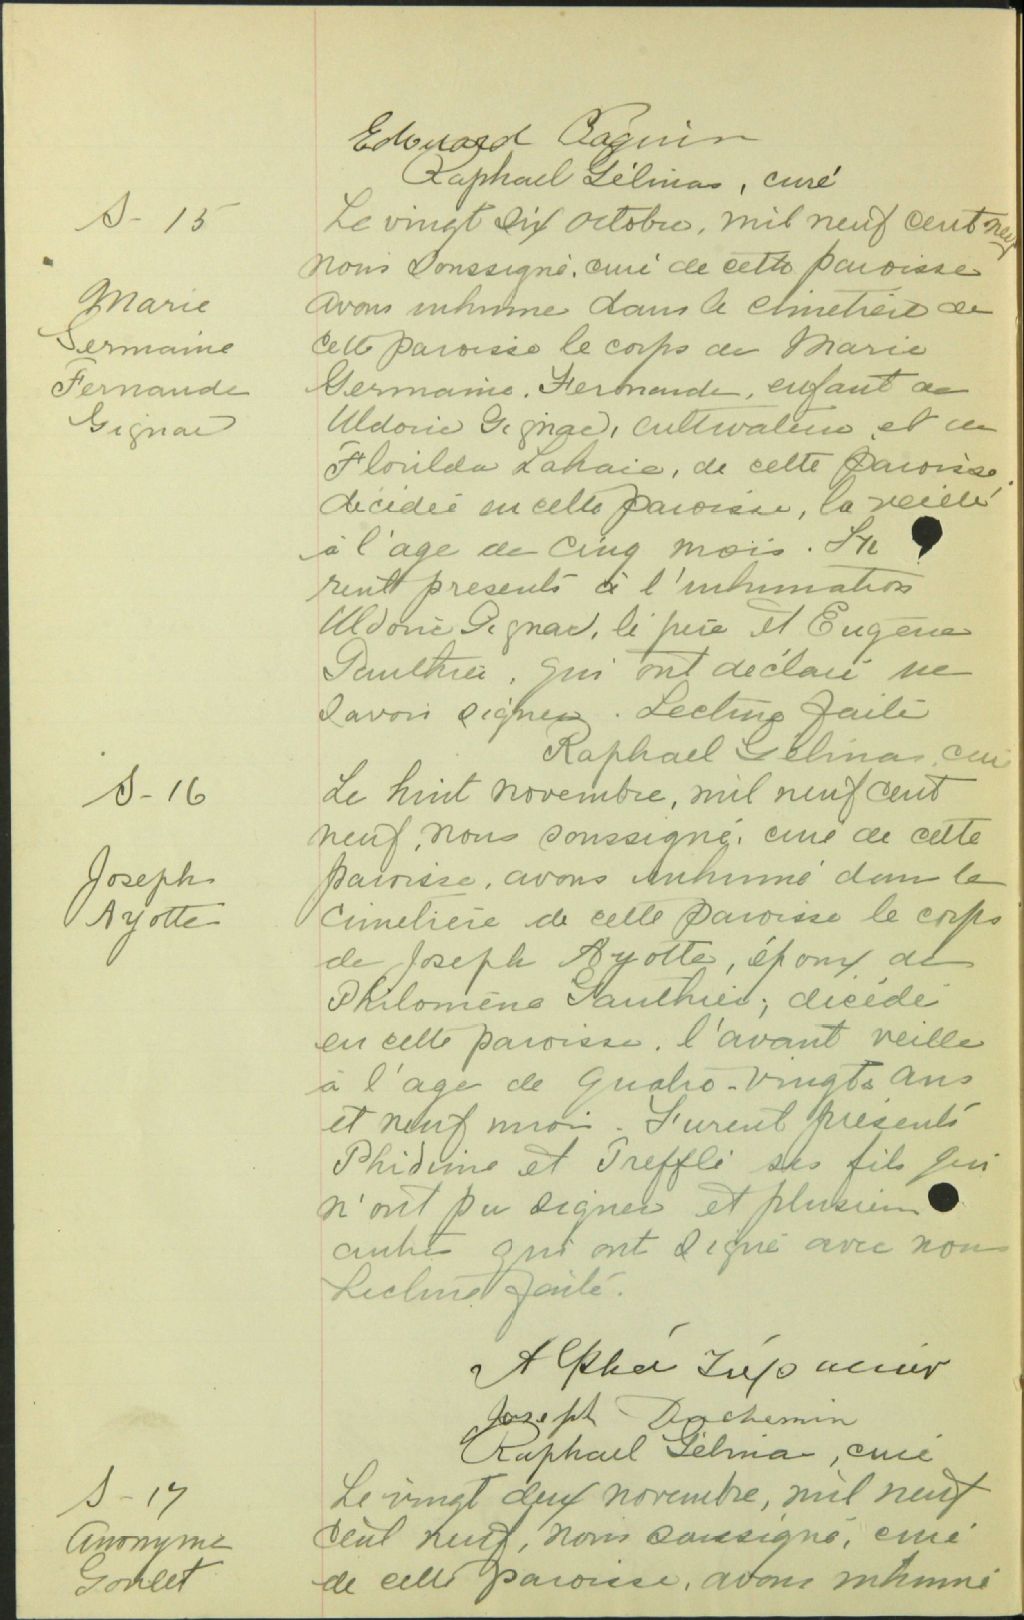 Edouard Paquin
Raphael Gélinas, curé
S - 15
Le vingt six octobre, mil neuf cent neuf
nous soussigné, curé de cette paroisse
Marie
avons inhumé dans le cimetière de
Germaine
cette paroisse le corps de Marie
Fernande
Germaine, Fernande, enfant de
Gignac
Uldoric Gignac, cultivateur, et de
Florilda Lahaie, de cette paroisse,
décédée en cette paroisse, la veille
à l'age de cinq mois. Fu
rent presents à l'inhumation
Uldoric Gignac, le père et Eugène
Gauthier, qui ont déclaré ne
savoir signer. Lecture faite
Raphael Gélinas, curé
S - 16
Le huit novembre, mil neuf cent
neuf, nous soussigné, curé de cette
Joseph
paroisse, avons inhumé dans le
Ayotte
cimetière de cette paroisse le corps
de Joseph Ayotte, époux de
Philomène Gauthier, décédé
en cette paroisse, l'avant veille
à l'age de quatre-vingts ans
et neuf mois. Furent présents
Phidime et Trefflé ses fils qui
n'ont pu signer et plusieurs
autres qui ont signé avec nous
Lecture faite.
Alpha
Joseph Duchemin
Raphael Gélinas, curé
S - 17
Le vingt deux novembre, mil neuf
Anonyme
cent neuf, nous soussigné, curé
Goulet
de cette paroisse, avons inhumé